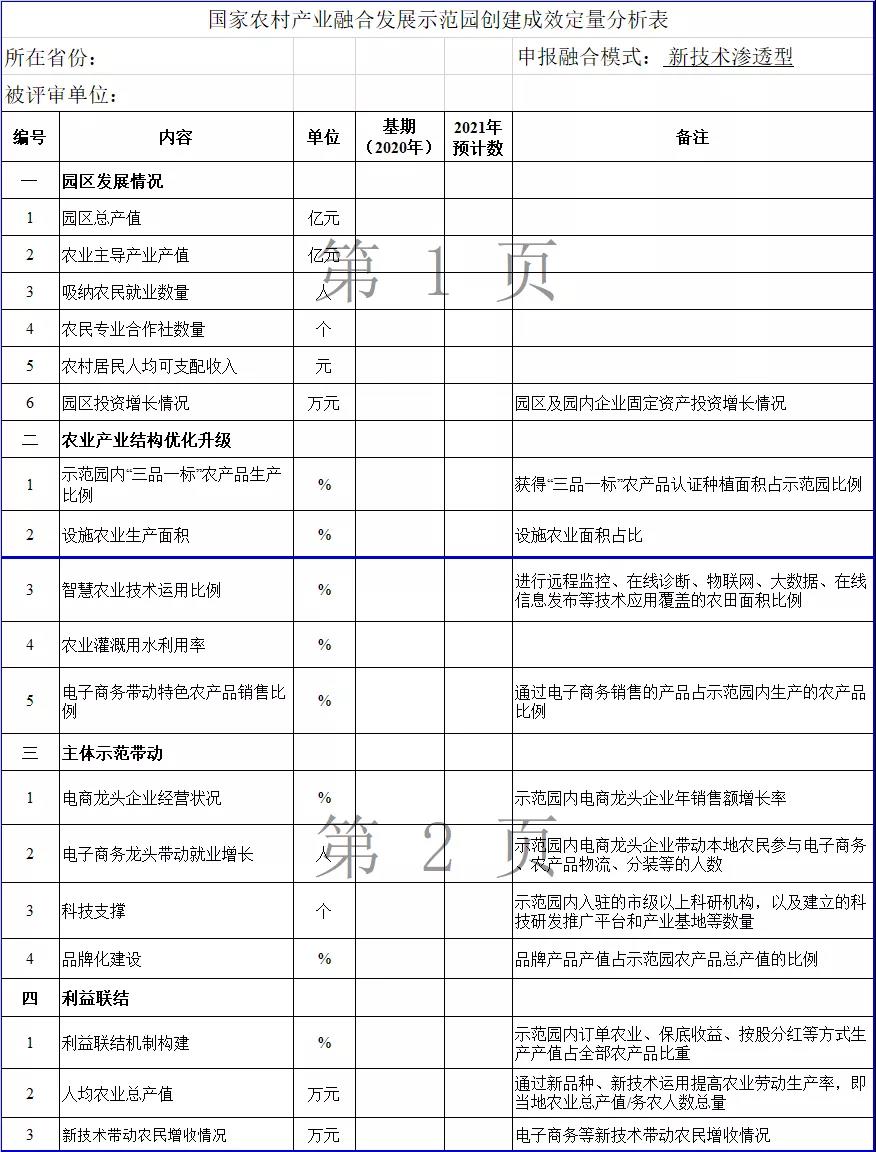 国家农村产业融合发展示范园创建成效定量分析表
所在省份：
申报融合模式： 新技术渗透型
被评审单位：
编号 内容 单位 基期（2020年） 2021年预计数 备注
一 园区发展情况
1 园区总产值 亿元
2 农业主导产业产值 亿元
3 吸纳农民就业数量 人
4 农民专业合作社数量 个
5 农村居民人均可支配收入 元
6 园区投资增长情况 万元 园区及园内企业固定资产投资增长情况
第 1 页
二 农业产业结构优化升级
1 示范园内“三品一标”农产品生产
比例 % 获得“三品一标”农产品认证种植面积占示范园比例
2 设施农业生产面积 % 设施农业面积占比
3 智慧农业技术运用比例 % 进行远程监控、在线诊断、物联网、大数据、在线
信息发布等技术应用覆盖的农田面积比例
4 农业灌溉用水利用率 %
5 电子商务带动特色农产品销售比
例 % 通过电子商务销售的产品占示范园内生产的农产品
比例
三 主体示范带动
1 电商龙头企业经营状况 % 示范园内电商龙头企业年销售额增长率
2 电子商务龙头带动就业增长 人 示范园内电商龙头企业带动本地农民参与电子商务
、农产品物流、分装等的人数
第 2 页
3 科技支撑 个 示范园内入驻的市级以上科研机构，以及建立的科
技研发推广平台和产业基地等数量
4 品牌化建设 % 品牌产品产值占示范园农产品总产值的比例
四 利益联结
1 利益联结机制构建 % 示范园内订单农业、保底收益、按股分红等方式生
产产值占全部农产品比重
2 人均农业总产值 万元 通过新品种、新技术运用提高农业劳动生产率，即
当地农业总产值/务农人数总量
3 新技术带动农民增收情况 万元 电子商务等新技术带动农民增收情况